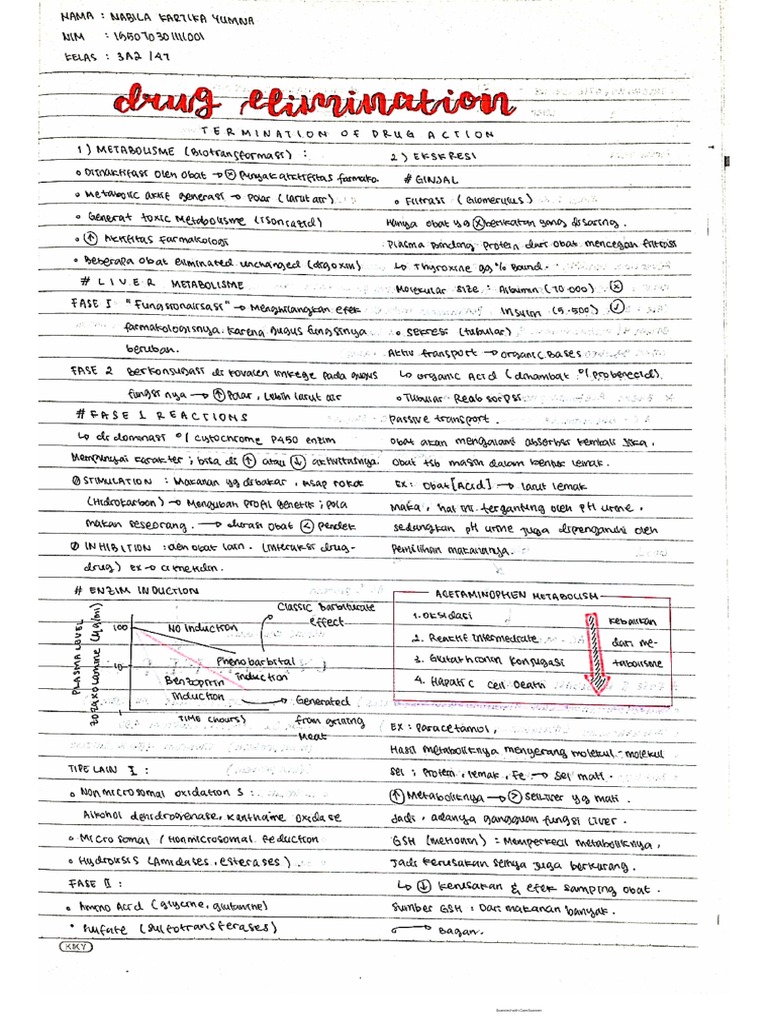 NAMA : NABILA KARTIKA YUMNA
NIM :
KELAS : 3A2 / 47
drug elimination
TERMINATION OF DRUG ACTION
1) METABOLISME (Biotransformasi) :
• Diinaktifasi oleh obat → ⊗ Punyak aktifitas farmako.
• Metabolic aktif generasi → Polar (larut air)
• Generat toxic Metabolisme (Isoniazid)
• ↑ Aktifitas Farmakologi
• Beberapa obat eliminated unchanged (digoxin)
# LIVER METABOLISME
FASE I "Fungsionalisasi" → Menghilangkan efek
farmakologisnya karena gugus fungsinya
berubah.
FASE 2 Berkonjugasi di kovalen linkege pada gugus
fungsi nya → ↑ Polar, lebih larut air
# FASE 1 REACTIONS
↳ di dominasi o/ cytochrome P450 enzim
Mempunyai karakter ; bisa di ↑ atau ↓ aktivitasnya.
∅ STIMULATION : Makanan yg dibakar, asap rokok
(Hidrokarbon) → Mengubah profil genetik ; pola
makan seseorang. → durasi obat < pendek
∅ INHIBITION : oleh obat lain. (interaksi drug-
drug) ex → cimetidin.
# ENZIM INDUCTION
PLASMA LEVEL
zoxazolamine (µg/ml)
100
10
No INDUCTION
Classic Barbiturate
effect
Phenobarbital
induction
Benzopyrin
Induction
Generated
from grilling
meat
TIME (hours)
TIPE LAIN I :
• Nonmicrosomal oxidation S :
Alkohol dehidrogenase, xanthine oxidase
• Microsomal / Nonmicrosomal Reduction
• Hydrolisis (Amidases, esterases).
FASE II :
• Amino Acid (glycine, glutamine)
• Sulfate (Sulfotransferases)
KKY
2) EKSKRESI
# GINJAL
• Filtrasi (Glomerulus)
Hanya obat yg ⊗ berikatan yang disaring.
Plasma Binding Protein dari obat mencegah filtrasi
↳ Thyroxine 99% Bound.
Molekular size : Albumin (70.000) ⊗
Insulin (5.500) ✓
• Sekresi (tubular)
Aktiv transport → organic Bases
↳ organic Acid (dihambat o/ probenecid).
• Tubular Reabsorpsi
Passive transport.
Obat akan mengalami absorbsi kembali jika.
Obat tsb masih dalam bentuk lemak.
Ex: Obat [Acid] → larut lemak
Maka, hal ini tergantung oleh pH urine,
sedangkan pH urine juga dipengaruhi oleh
Pemilihan makanannya.
ACETAMINOPHEN METABOLISM
1. Oksidasi
2. Reaktif Intermediate
3. Glutathionin Konjugasi
4. Hapatic cell Death
Kebalikan
dari me-
tabolisme
EX : Paracetamol,
Hasil metaboliknya menyerang molekul-molekul
sel ; Protein, lemak, Fe → Sel mati.
↑ Metaboliknya → > sel liver yg mati.
Jadi, adanya gangguan fungsi Liver.
GSH : Memperkecil metaboliknya,
Jadi kerusakan selnya juga berkurang.
↳ ↓ kerusakan & efek samping obat.
Sumber GSH : Dari makanan banyak.
Bagan.
Scanned with CamScanner